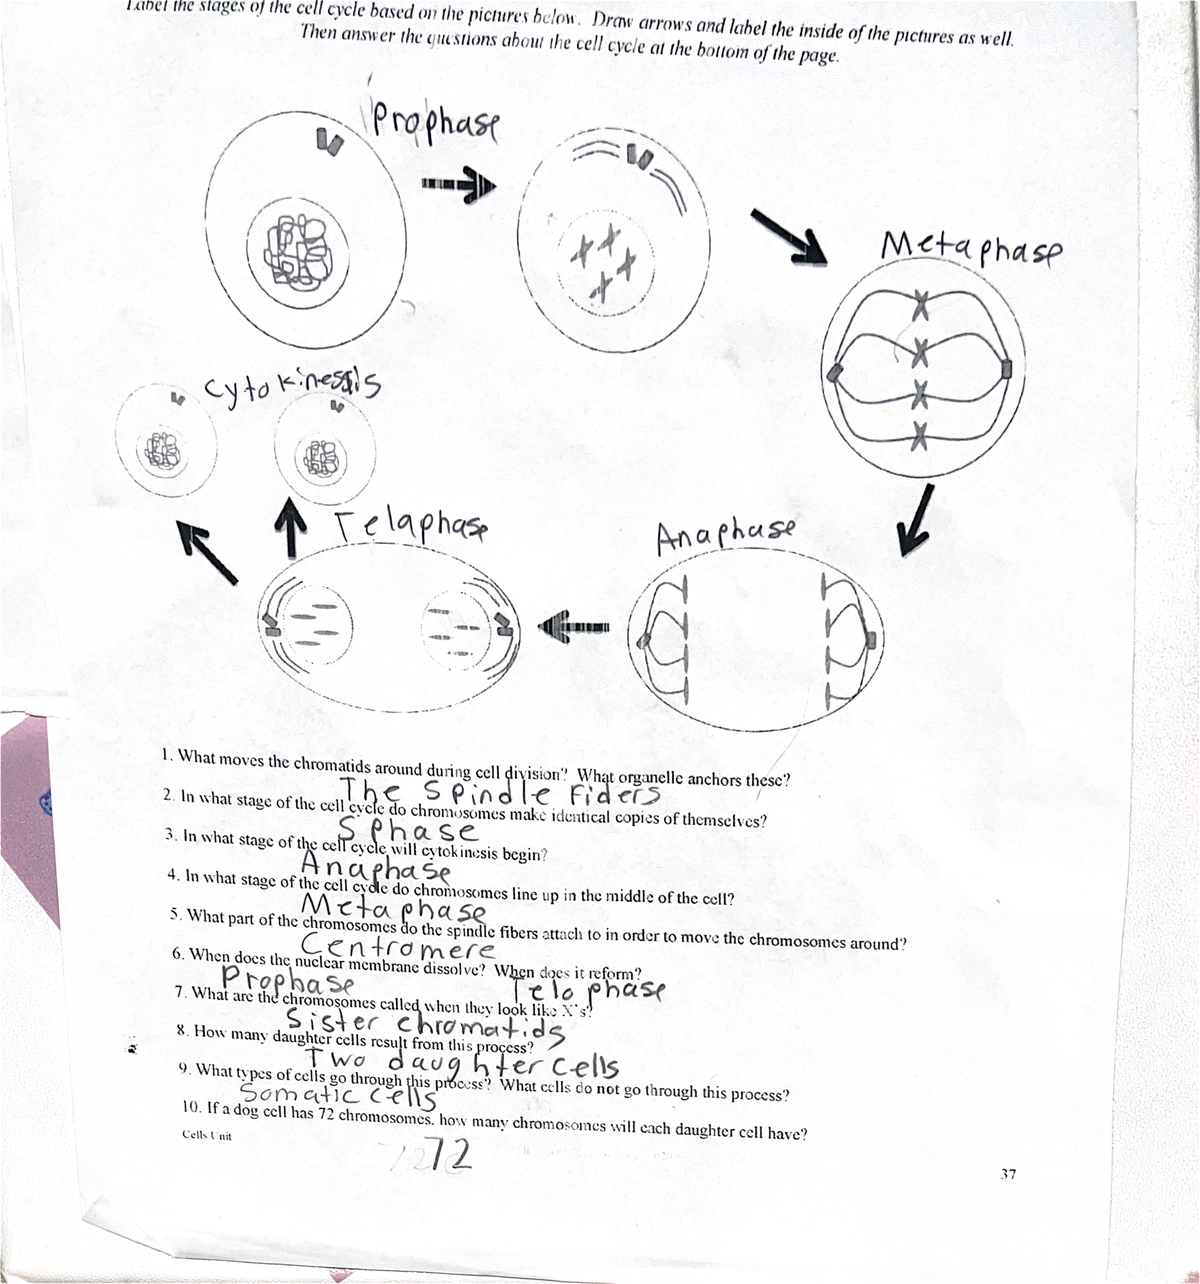 Label the stages of the cell cycle based on the pictures below. Draw arrows and label the inside of the pictures as well.
Then answer the questions about the cell cycle at the bottom of the page.
Prophase
Metaphase
Cytokinesis
Telaphase
Anaphase
1. What moves the chromatids around during cell division? What organelle anchors these?
The Spindle Fiders
2. In what stage of the cell cycle do chromosomes make identical copies of themselves?
S Phase
3. In what stage of the cell cycle will cytokinesis begin?
Anaphase
4. In what stage of the cell cycle do chromosomes line up in the middle of the cell?
Metaphase
5. What part of the chromosomes do the spindle fibers attach to in order to move the chromosomes around?
Centromere
6. When does the nuclear membrane dissolve? When does it reform?
Prophase Telophase
7. What are the chromosomes called when they look like X's?
Sister chromatids
8. How many daughter cells result from this process?
Two daughter cells
9. What types of cells go through this process? What cells do not go through this process?
Somatic cells
10. If a dog cell has 72 chromosomes, how many chromosomes will each daughter cell have?
Cells Unit
72
37